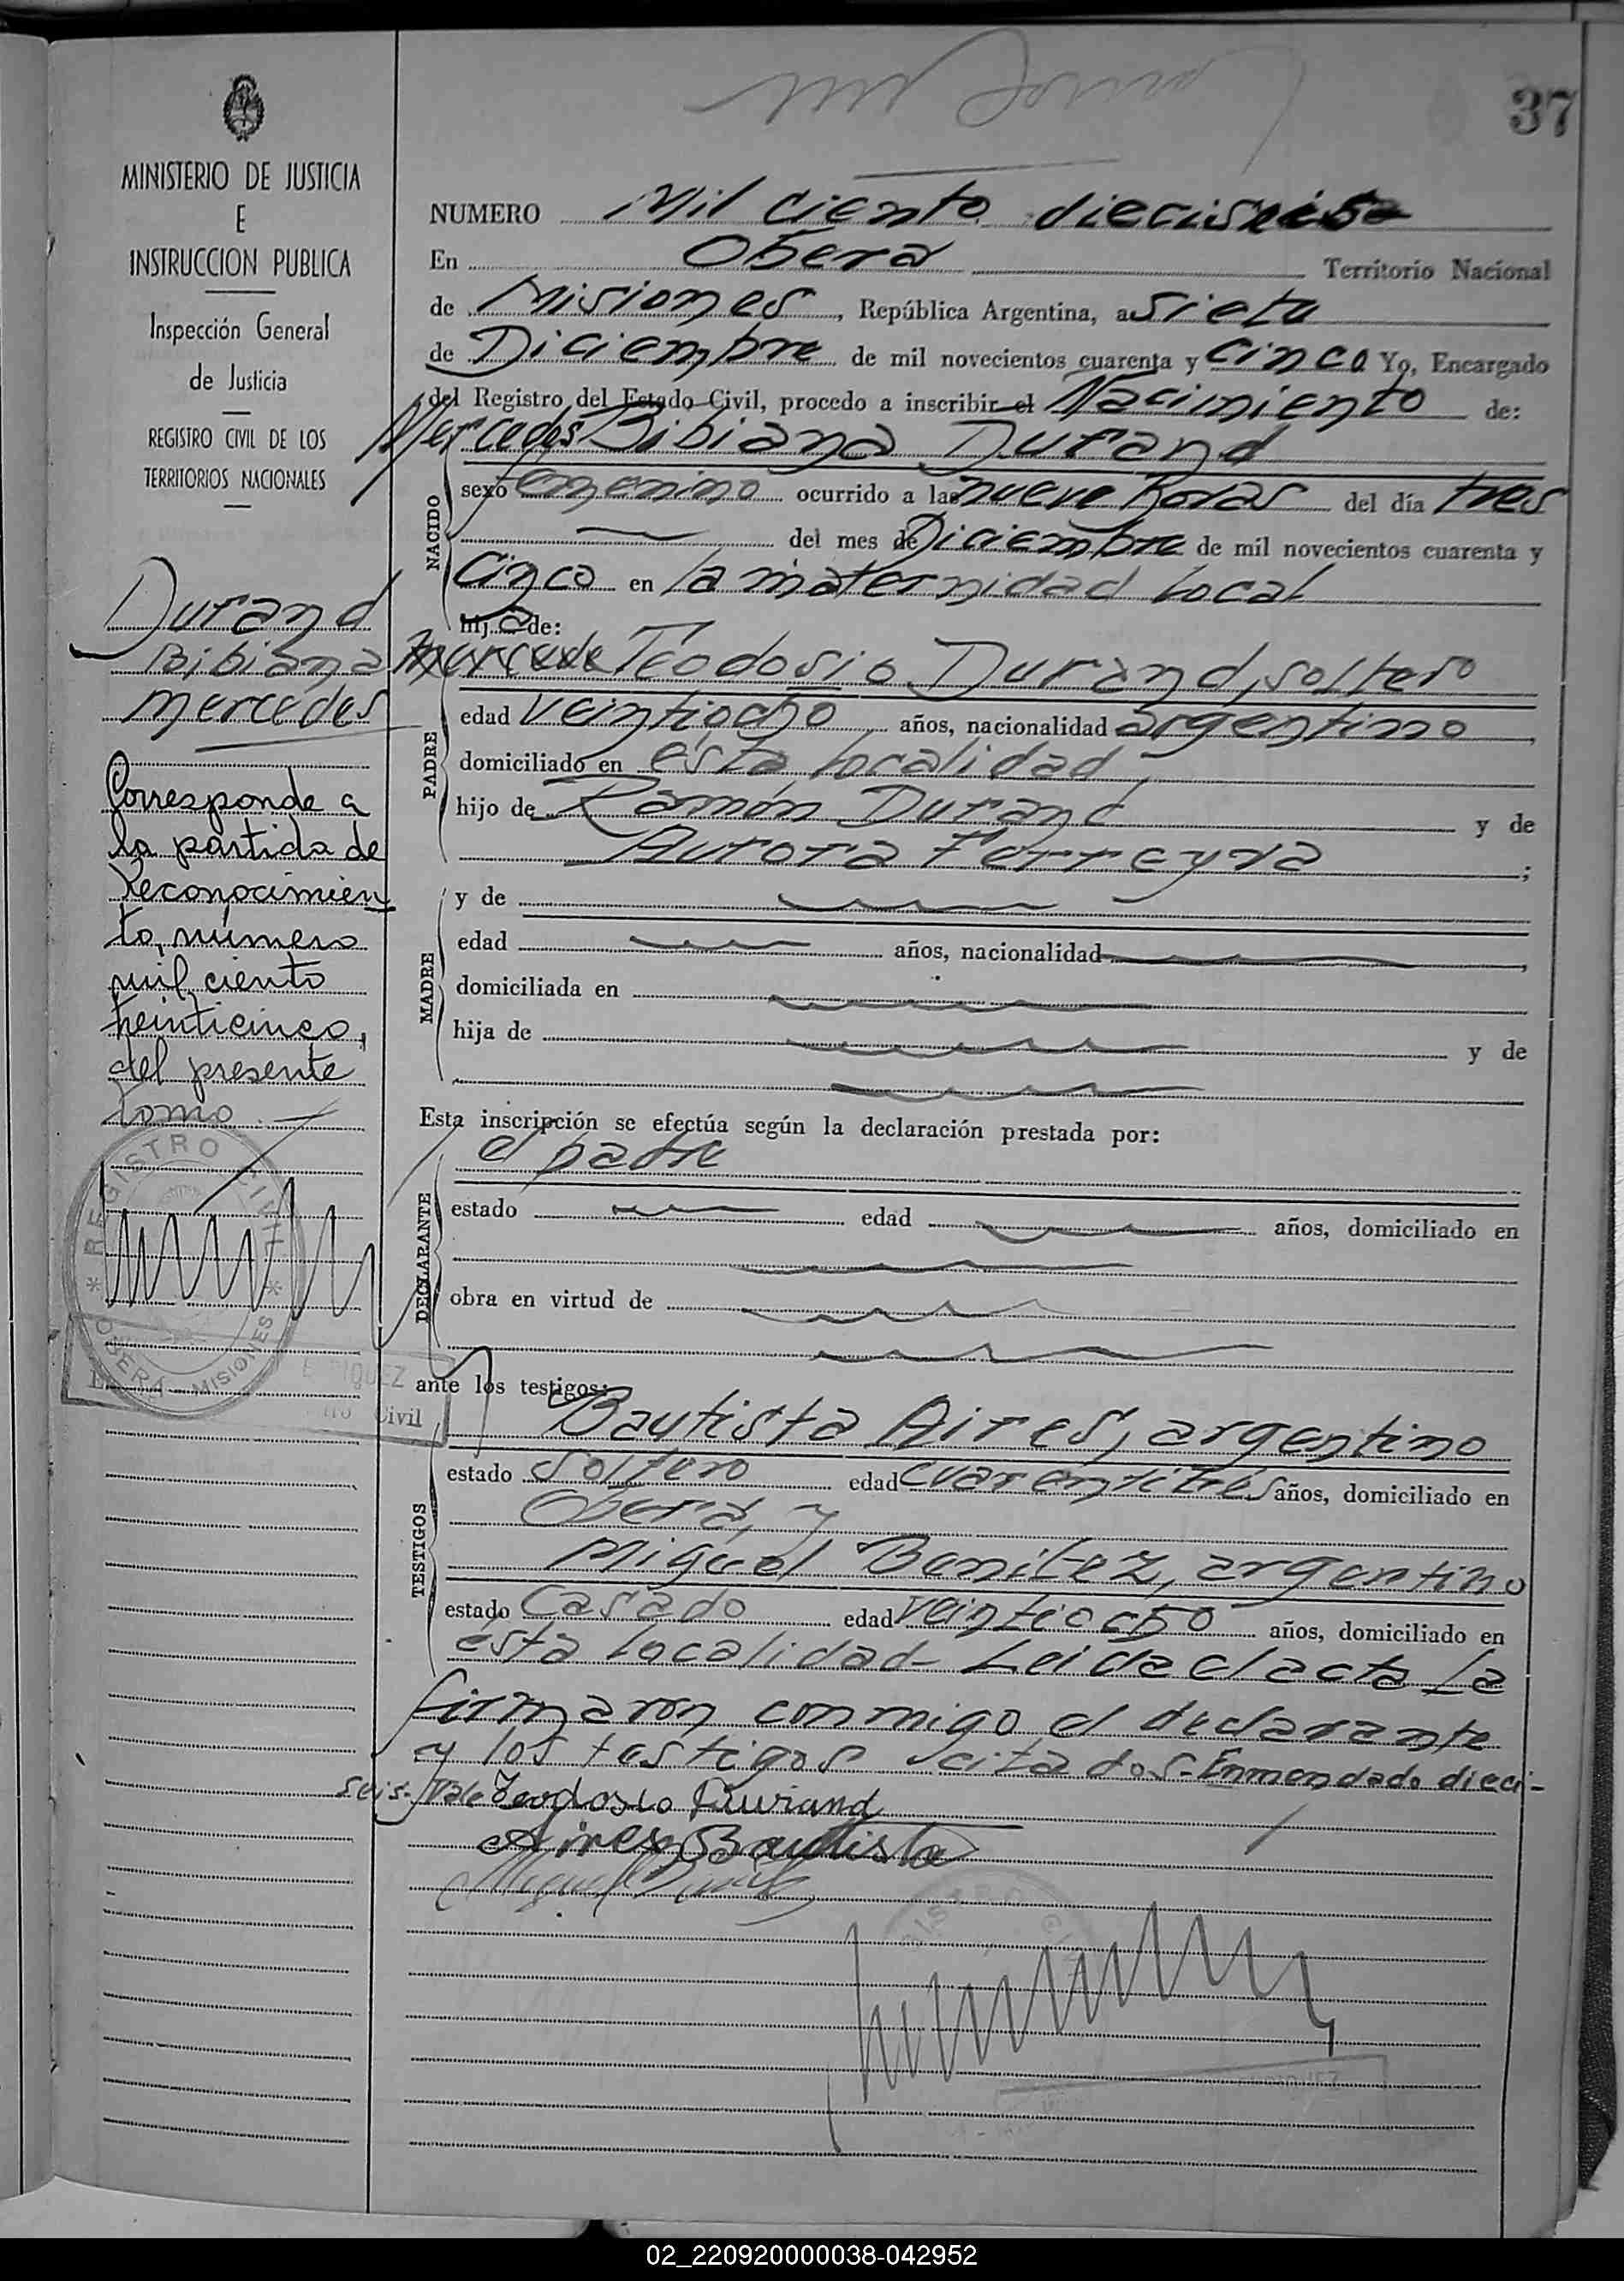 37
MINISTERIO DE JUSTICIA
E
INSTRUCCION PUBLICA
Inspección General
de Justicia
REGISTRO CIVIL DE LOS
TERRITORIOS NACIONALES
Durand
Bibiana
Mercedes
Corresponde a
la partida de
Reconocimien
to, número
mil ciento
veinticinco,
del presente
tomo.
REGISTRO CIVIL
OBERA - MISIONES
NUMERO Mil ciento dieciseis
En Obera Territorio Nacional
de Misiones, República Argentina, a siete
de Diciembre de mil novecientos cuarenta y cinco Yo, Encargado
del Registro del Estado Civil, procedo a inscribir el Nacimiento de:
Mercedes Bibiana Durand
NACIDO
sexo femenino ocurrido a las nueve horas del día tres
del mes de Diciembre de mil novecientos cuarenta y
cinco en la maternidad local
hija de:
Teodosio Durand, soltero
PADRE
edad veintiocho años, nacionalidad argentino,
domiciliado en ésta localidad,
hijo de Ramón Durand y de
Aurora Ferreyra;
MADRE
y de
edad años, nacionalidad,
domiciliada en
hija de y de
Esta inscripción se efectúa según la declaración prestada por:
el padre
DECLARANTE
estado edad años, domiciliado en
obra en virtud de
ante los testigos:
Civil
Bautista Aires, argentino
TESTIGOS
estado soltero edad cuarentitrés años, domiciliado en
Oberá, y
Miguel Benitez, argentino
estado casado edad veintiocho años, domiciliado en
ésta localidad- Leida el acta la
firmaron conmigo el declarante
y los testigos citados- Enmendado dieci-
seis- Vale Teodosio Durand
Aires Bautista
Miguel
02_220920000038-042952